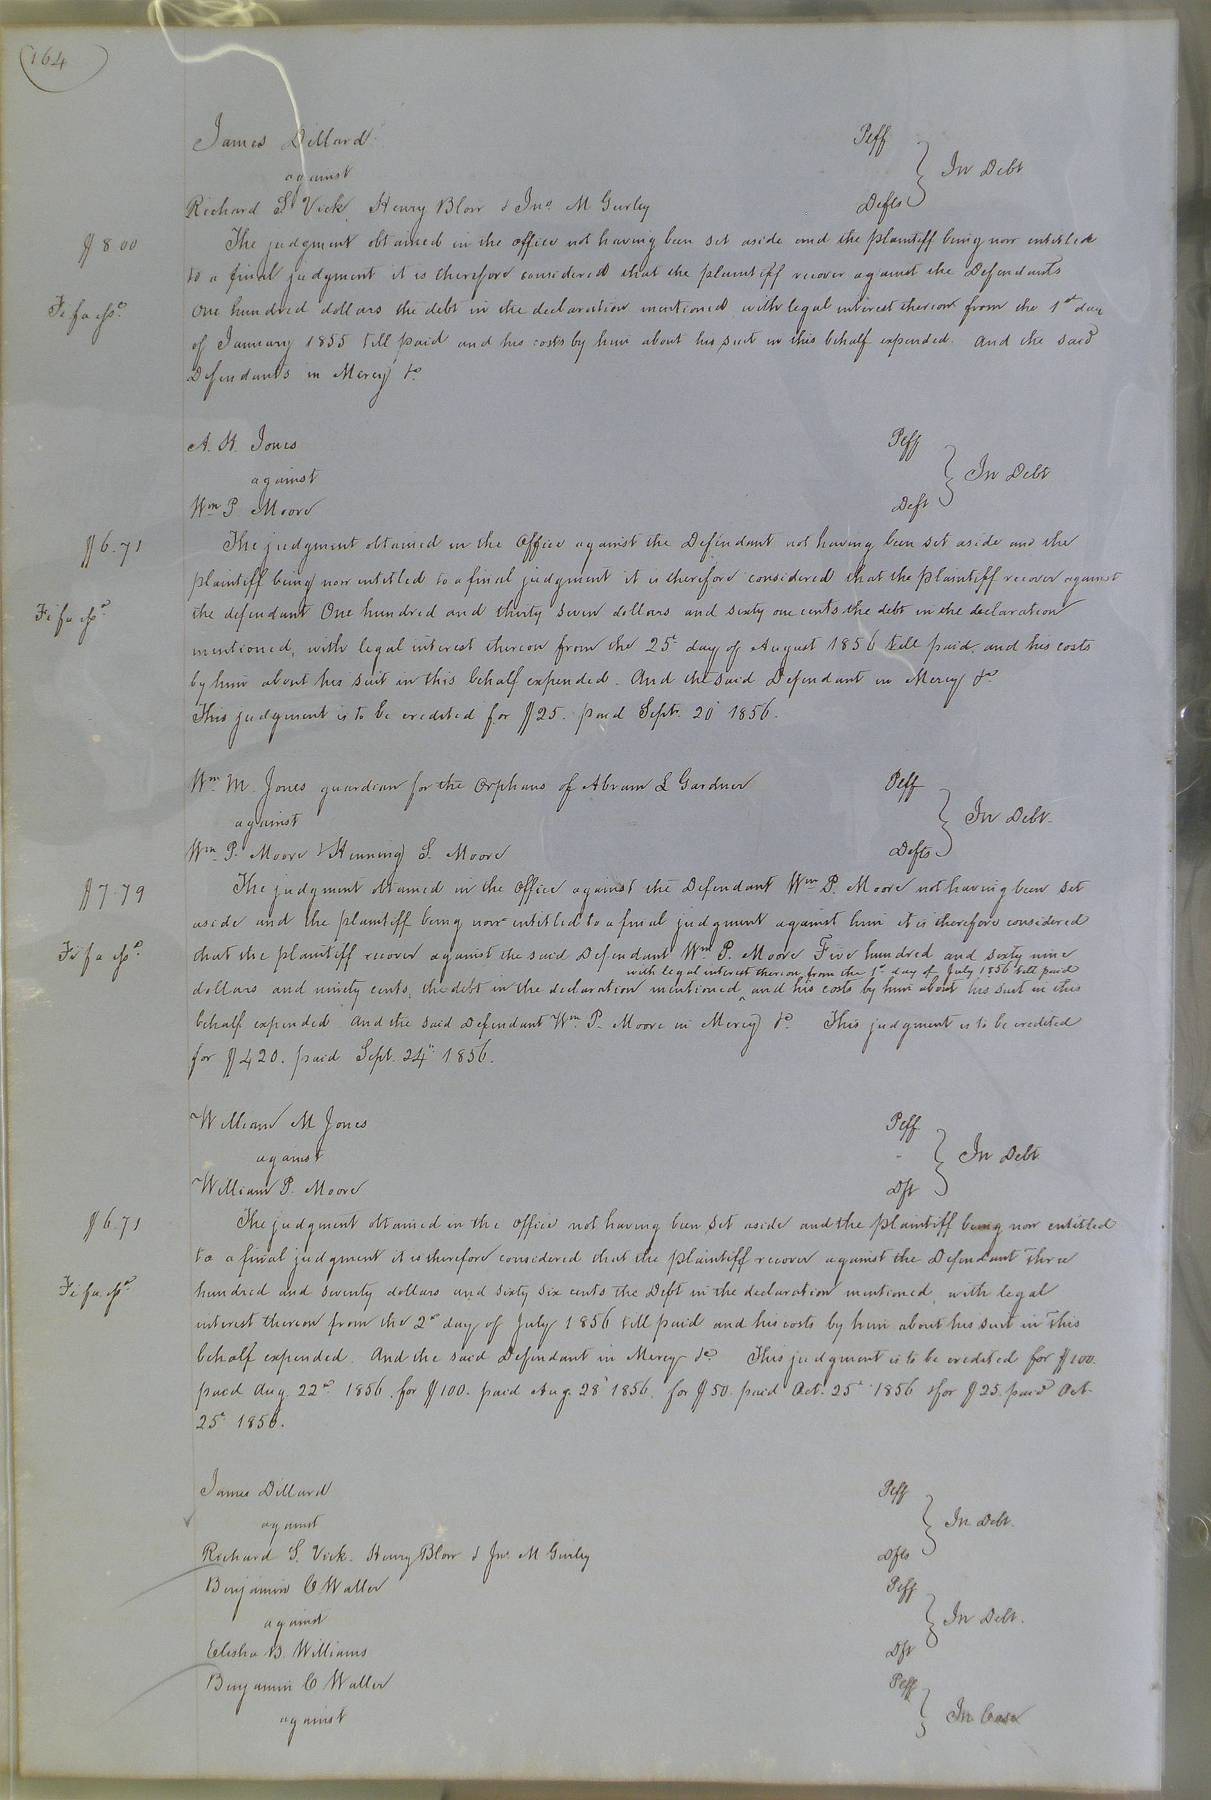 164
James Dillard Plff
against In Debt
Richard S. Vick, Henry Blow & Jno. M Gurley Defts
$8.00 The judgment obtained in the office not having been set aside and the plaintiff being now entitled
to a final judgment it is therefore considered that the plaintiff recover against the Defendants
Fi fa One hundred dollars the debt in the declaration mentioned with legal interest thereon from the 1st day
of January 1855 till paid and his costs by him about his suit in this behalf expended. And the said
Defendants in Mercy &c
A. H. Jones Plff
against In Debt
Wm P Moore Deft
$6.71 The judgment obtained in the Office against the Defendant not having been set aside and the
plaintiff being now entitled to a final judgment it is therefore considered that the plaintiff recover against
Fi fa the defendant One hundred and thirty seven dollars and sixty one cents the debt in the declaration
mentioned, with legal interest thereon from the 25th day of August 1856 till paid, and his costs
by him about his suit in this behalf expended. And the said Defendant in Mercy &c
This judgment is to be credited for $25. paid Sept. 20 1856.
Wm M. Jones guardian for the Orphans of Abram L Gardner Plff
against In Debt.
Wm P. Moore & Henning S. Moore Defts
$7.79 The judgment obtained in the Office against the Defendant Wm P. Moore not having been set
aside and the plaintiff being now entitled to a final judgment against him it is therefore considered
Fi fa that the plaintiff recover against the said Defendant Wm P. Moore Five hundred and sixty nine
with legal interest thereon from the 1st day of July 1856 till paid
dollars and ninety cents, the debt in the declaration mentioned ^ and his costs by him about his suit in this
behalf expended And the said Defendant Wm P. Moore in Mercy &c This judgment is to be credited
for $420. paid Sept. 24th 1856.
William M Jones Plff
against In Debt
William P. Moore Dft
$6.71 The judgment obtained in the office not having been set aside and the plaintiff being now entitled
to a final judgment it is therefore considered that the plaintiff recover against the Defendant Three
Fi fa hundred and seventy dollars and sixty six cents the Debt in the declaration mentioned, with legal
interest thereon from the 2nd day of July 1856 till paid and his costs by him about his suit in this
behalf expended. And the said Defendant in Mercy &c This judgment is to be credited for $100.
paid Aug. 22nd 1856. for $100. paid Aug. 28 1856. for $50. paid Oct. 25th 1856 & for $25. paid Oct.
25th 1856.
James Dillard Plff
against In Debt.
Richard S. Vick. Henry Blow & Jno. M Gurley Dfts
Benjamin C Waller Plff
against In Debt.
Elisha B. Williams Dft
Benjamin C Waller Plff
against In Case